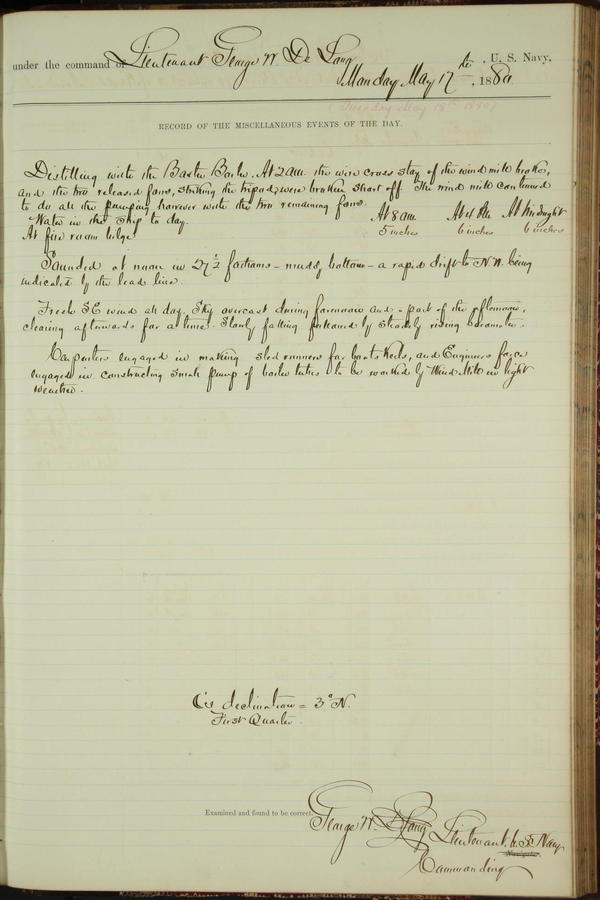 under the command of Lieutenant George W. De Long, U. S. Navy,
Monday May 17th, 1880
(Tuesday May 18th 1880)
RECORD OF THE MISCELLANEOUS EVENTS OF THE DAY.
Distilling with the Baxter Boiler. At 2 AM. the wire cross stay of the wind mill broke,
and the two released fans, striking the tripod, were broken short off. The wind mill continued
to do all the pumping however with the two remaining fans.
Water in the Ship to day. At 8 am. At 4 PM. At Midnight
At fire room bilge 5 inches 6 inches 6 inches
Sounded at noon in 27 1/2 fathoms - muddy bottom - a rapid drift to N.W. being
indicated by the lead line.
Fresh SE wind all day. Sky overcast during forenoon and a part of the afternoon,
clearing afterwards for a time. Slowly falling followed by steadily rising barometer.
Carpenters engaged in making sled runners for boat keels, and Engineers force
engaged in constructing small pump of boiler tubes to be worked by Wind Mill in light
weather.
☾'s declination = 3° N.
First Quarter.
Examined and found to be correct.
George W. De Long Lieutenant U.S. Navy
Navigator.
Commanding